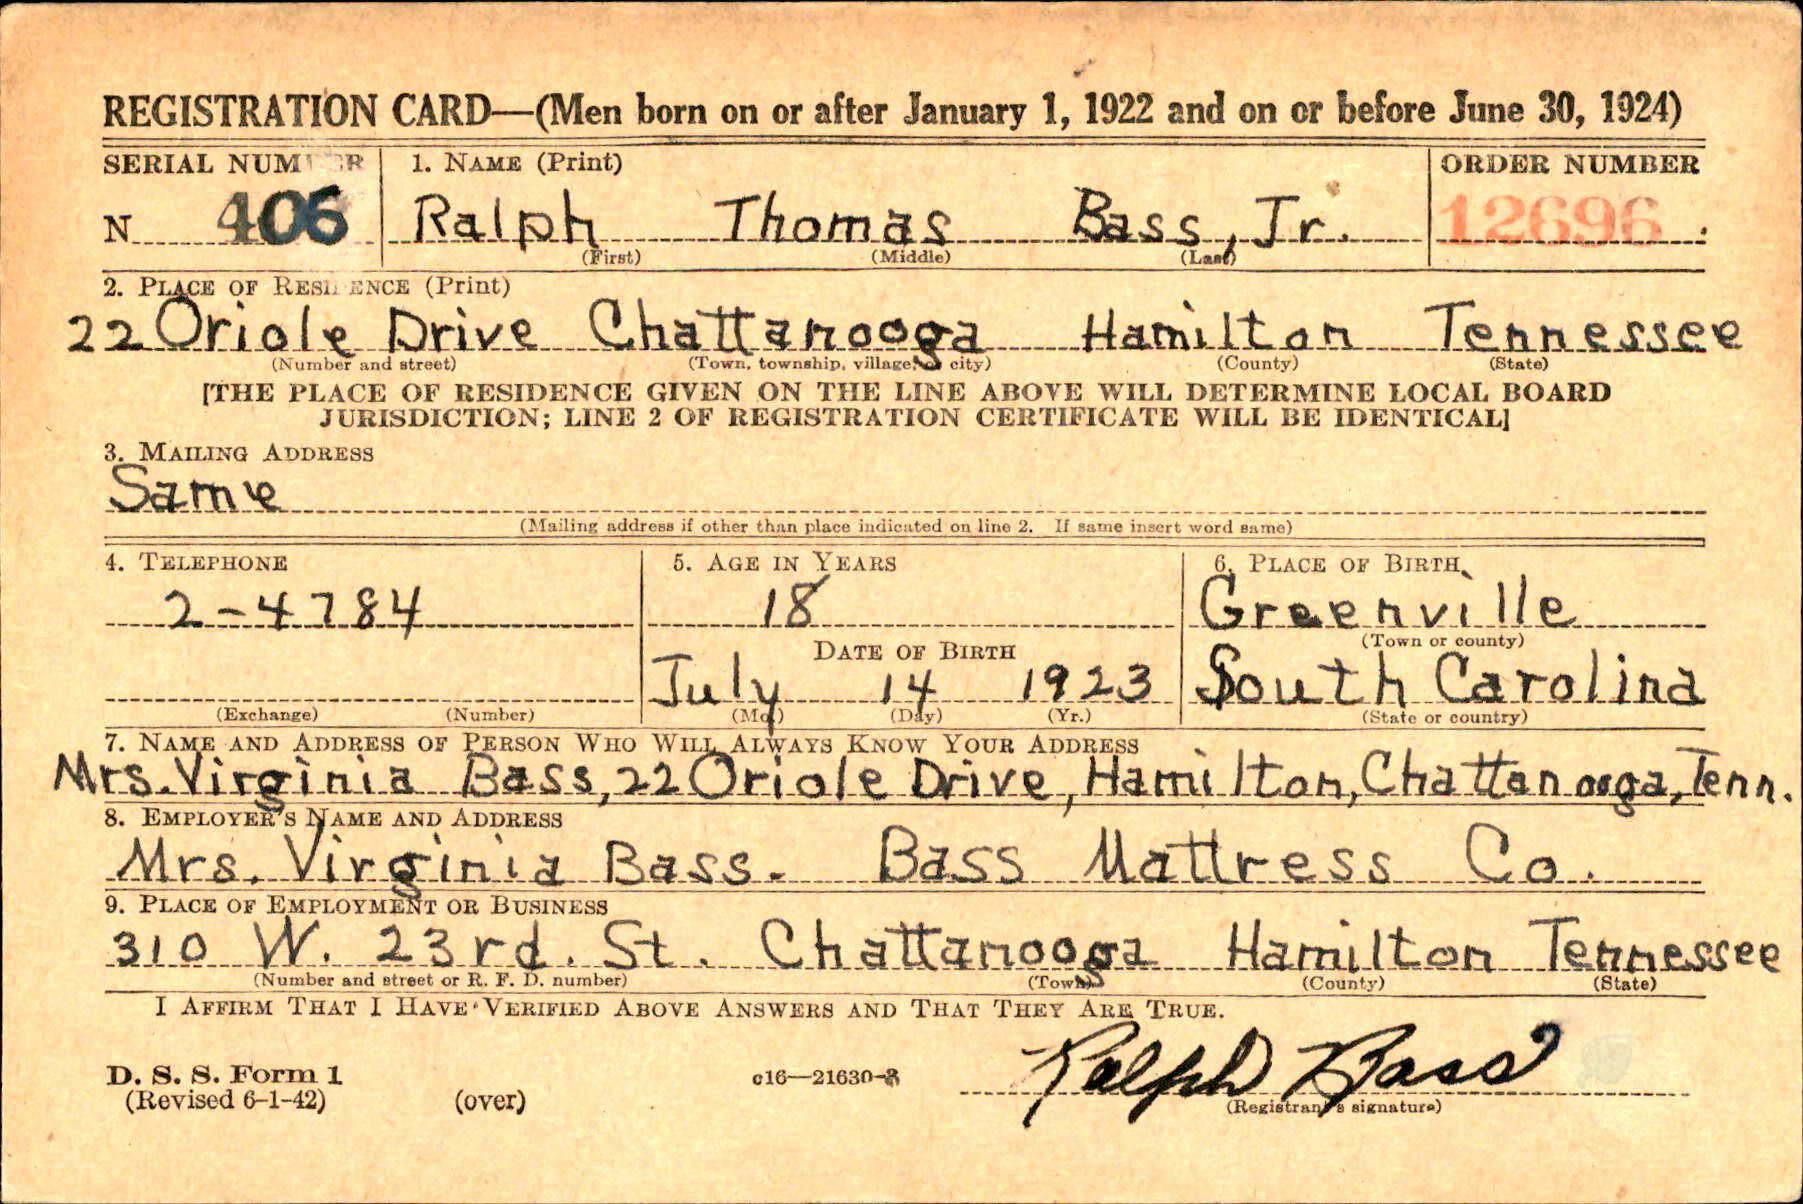 REGISTRATION CARD—(Men born on or after January 1, 1922 and on or before June 30, 1924)
SERIAL NUMBER 1. NAME (Print) ORDER NUMBER
N 406 Ralph Thomas Bass, Jr. 12696
(First) (Middle) (Last)
2. PLACE OF RESIDENCE (Print)
22 Oriole Drive Chattanooga Hamilton Tennessee
(Number and street) (Town, township, village, or city) (County) (State)
[THE PLACE OF RESIDENCE GIVEN ON THE LINE ABOVE WILL DETERMINE LOCAL BOARD
JURISDICTION; LINE 2 OF REGISTRATION CERTIFICATE WILL BE IDENTICAL]
3. MAILING ADDRESS
Same
(Mailing address if other than place indicated on line 2. If same insert word same)
4. TELEPHONE 5. AGE IN YEARS 6. PLACE OF BIRTH
2-4784 18 Greenville
(Town or county)
DATE OF BIRTH
July 14 1923 South Carolina
(Exchange) (Number) (Mo.) (Day) (Yr.) (State or country)
7. NAME AND ADDRESS OF PERSON WHO WILL ALWAYS KNOW YOUR ADDRESS
Mrs. Virginia Bass, 22 Oriole Drive, Hamilton, Chattanooga, Tenn.
8. EMPLOYER'S NAME AND ADDRESS
Mrs. Virginia Bass. Bass Mattress Co.
9. PLACE OF EMPLOYMENT OR BUSINESS
310 W. 23rd. St. Chattanooga Hamilton Tennessee
(Number and street or R. F. D. number) (Town) (County) (State)
I AFFIRM THAT I HAVE VERIFIED ABOVE ANSWERS AND THAT THEY ARE TRUE.
Ralph Bass
D. S. S. Form 1 c16—21630-3
(Revised 6-1-42) (over) (Registrant's signature)